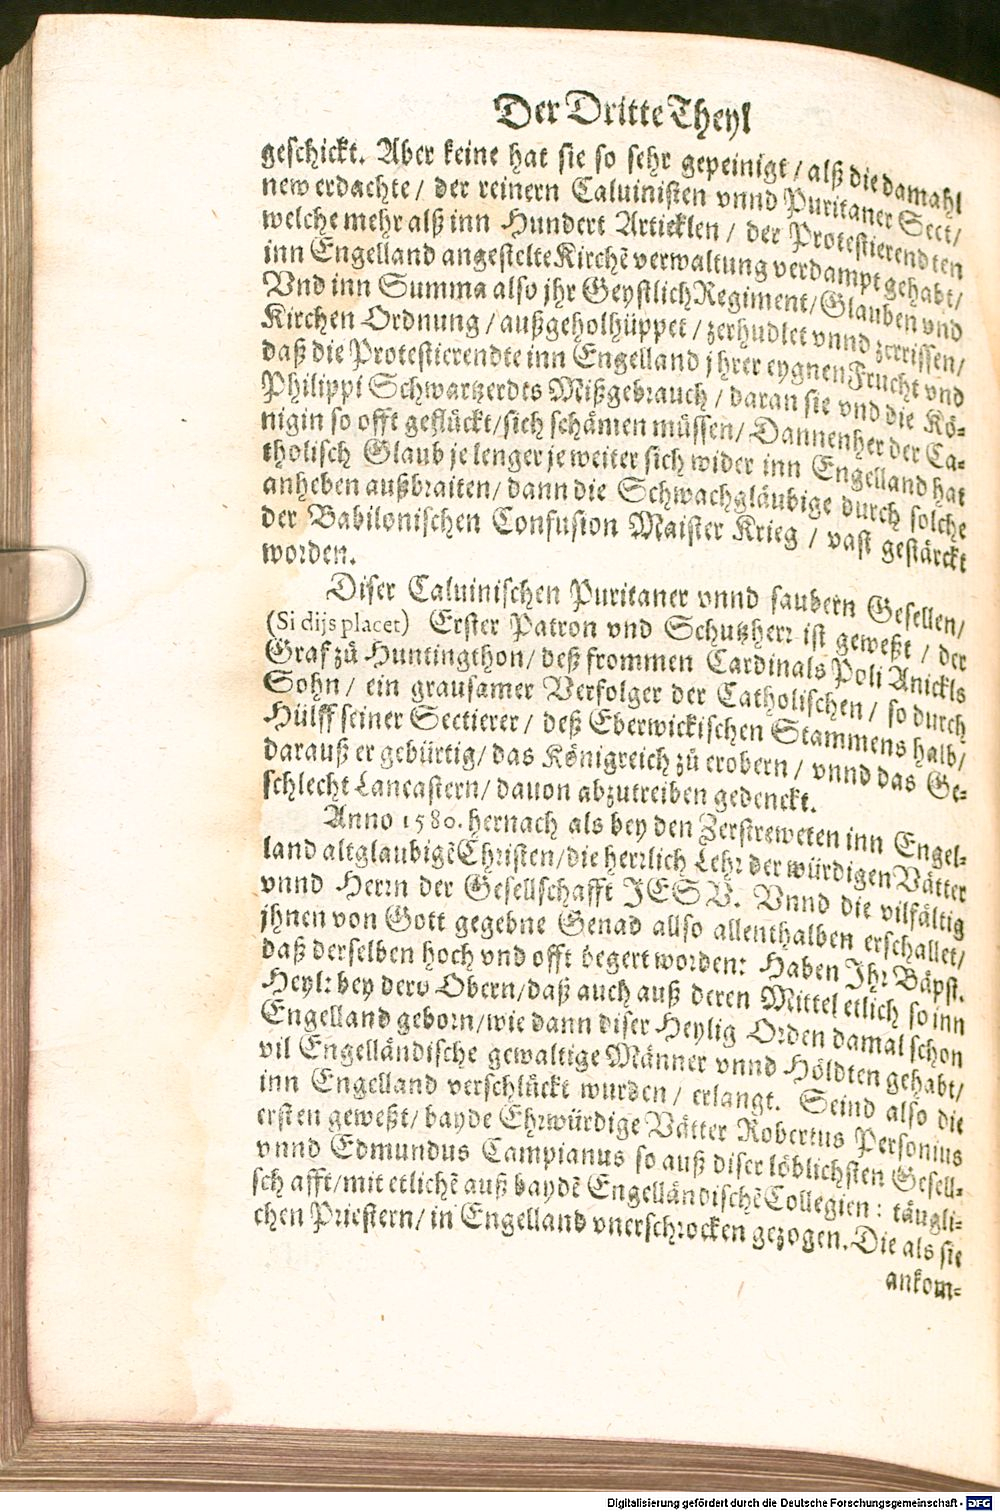 Der Dritte Theyl
geschickt. Aber keine hat sie so sehr gepeinigt / alß die damahl
new erdachte / der reinern Caluinisten vnnd Puritaner Sect /
welche mehr alß inn Hundert Articklen / der Protestierendten
inn Engelland angestelte Kirchẽ verwaltung verdampt gehabt /
Vnd inn Summa also jhr Geystlich Regiment / Glauben vnd
Kirchen Ordnung / außgeholhüppet / zerhudlet vnnd zerrissen /
daß die Protestierendte inn Engelland jhrer eygnen Frucht vnd
Philippi Schwartzerdts Mißgebrauch / daran sie vnd die Kö-
nigin so offt geflückt / sich schämen müssen / Dannenher der Ca-
tholisch Glaub je lenger je weiter sich wider inn Engelland hat
anheben außbraiten / dann die Schwachgläubige durch solche
der Babilonischen Confusion Maister Krieg / vast gestärckt
worden.
Diser Caluinischen Puritaner vnnd saubern Gesellen /
(Si dijs placet) Erster Patron vnd Schutzherr ist geweßt / der
Graf zů Huntingthon / deß frommen Cardinals Poli Anickls
Sohn / ein grausamer Verfolger der Catholischen / so durch
Hülff seiner Sectierer / deß Eberwickischen Stammens halb /
darauß er gebürtig / das Königreich zů erobern / vnnd das Ge-
schlecht Lancastern / dauon abzutreiben gedenckt.
Anno 1580. hernach als bey den Zerstreweten inn Engel-
land altglaubigẽ Christen / die herrlich Lehr der würdigen Vätter
vnnd Herrn der Gesellschafft IESV. Vnnd die vilfältig
jhnen von Gott gegebne Genad allso allenthalben erschallet /
daß derselben hoch vnd offt begert worden: Haben Ihr Bäpst.
Heyl: bey dero Obern / daß auch auß deren Mittel etlich so inn
Engelland geborn / wie dann diser Heylig Orden damal schon
vil Engelländische gewaltige Männer vnnd Höldten gehabt /
inn Engelland verschlückt wurden / erlangt. Seind also die
ersten geweßt / bayde Ehrwürdige Vätter Robertus Personius
vnnd Edmundus Campianus so auß diser löblichsten Gesell-
schafft / mit etlichẽ auß baydẽ Engelländischẽ Collegien : täugli-
chen Priestern / in Engelland vnerschrocken gezogen. Die als sie
ankom-
Digitalisierung gefördert durch die Deutsche Forschungsgemeinschaft - DFG